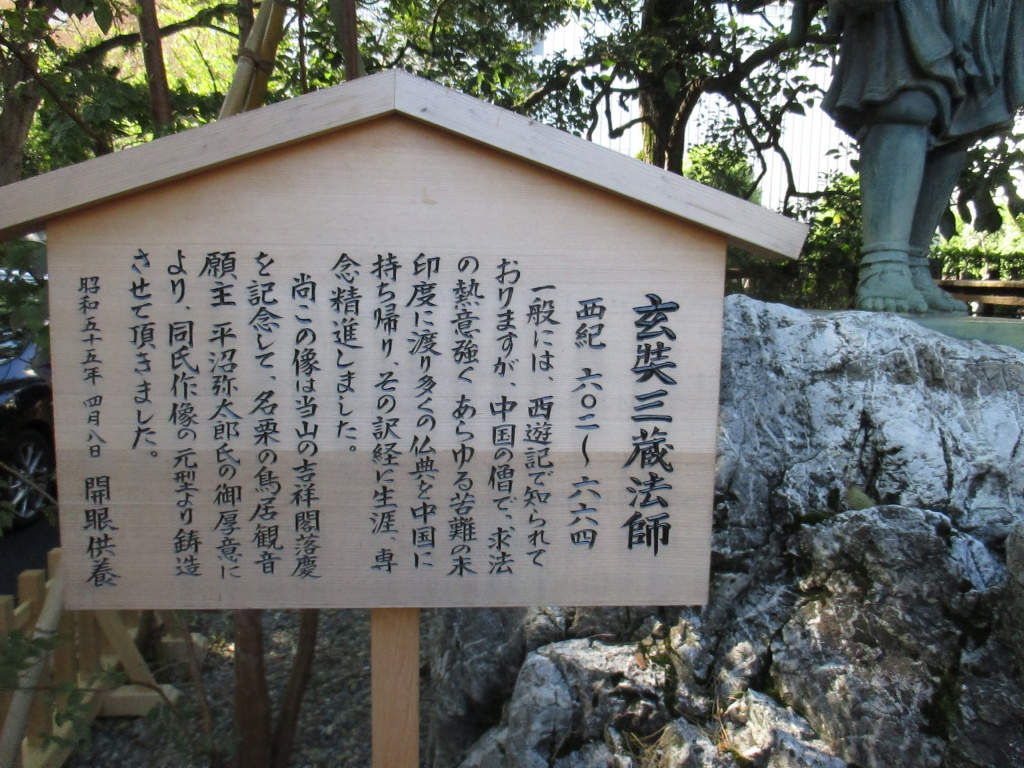 玄奘三蔵法師
西紀 六〇二〜六六四
一般には、西遊記で知られて
おりますが、中国の僧で、求法
の熱意強く あらゆる苦難の末
印度に渡り多くの仏典を中国に
持ち帰り、その訳経に生涯、専
念精進しました。
尚この像は当山の吉祥閣落慶
を記念して、名栗の鳥居観音
願主 平沼弥太郎氏の御厚意に
より、同氏作像の元型より鋳造
させて頂きました。
昭和五十五年 四月八日 開眼供養